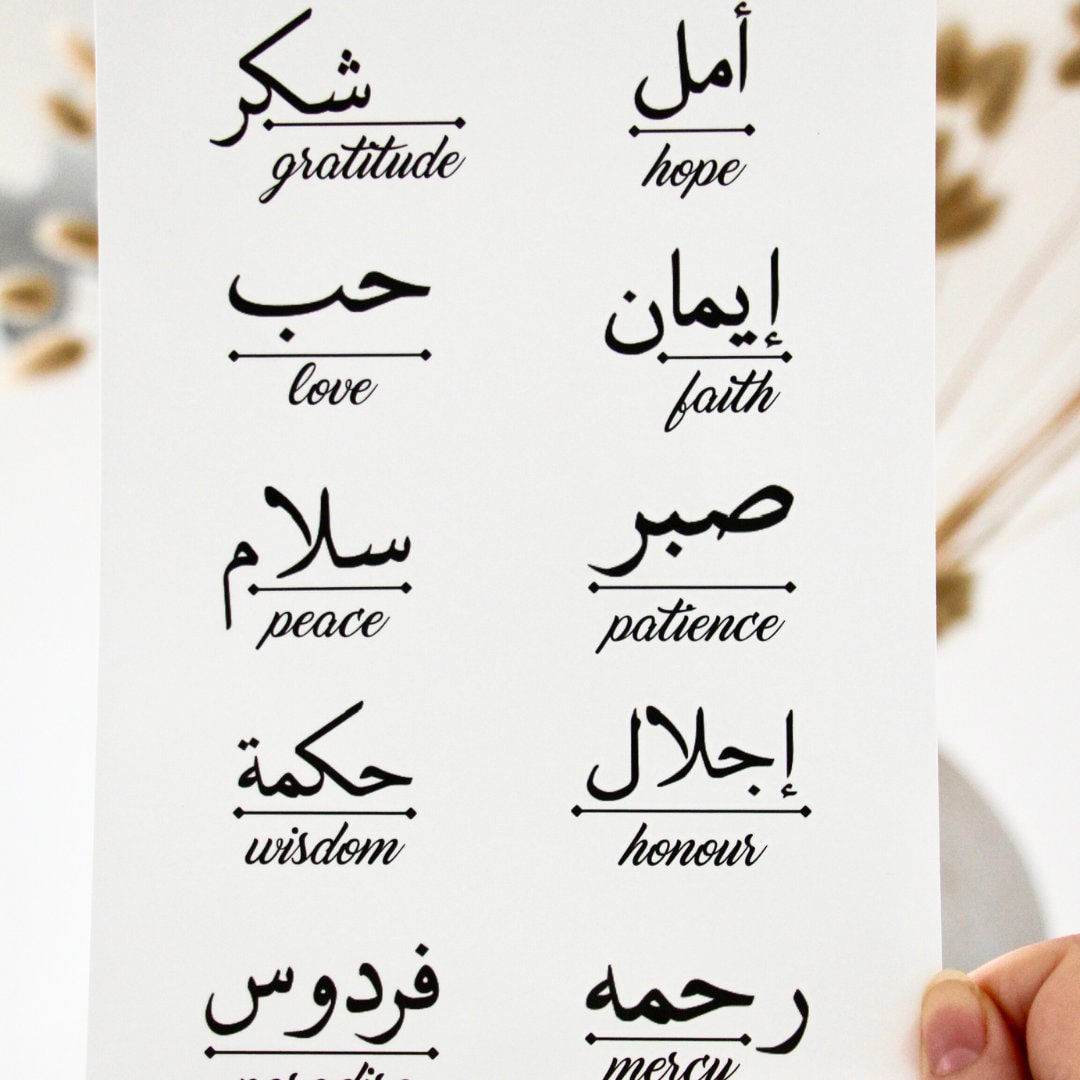 شكر
gratitude
أمل
hope
حب
love
إيمان
faith
سلام
peace
صبر
patience
حكمة
wisdom
إجلال
honour
فردوس
paradise
رحمه
mercy